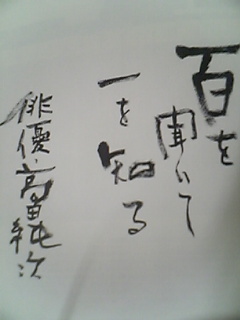 百を
聞いて
一を知る
俳優・高田純次